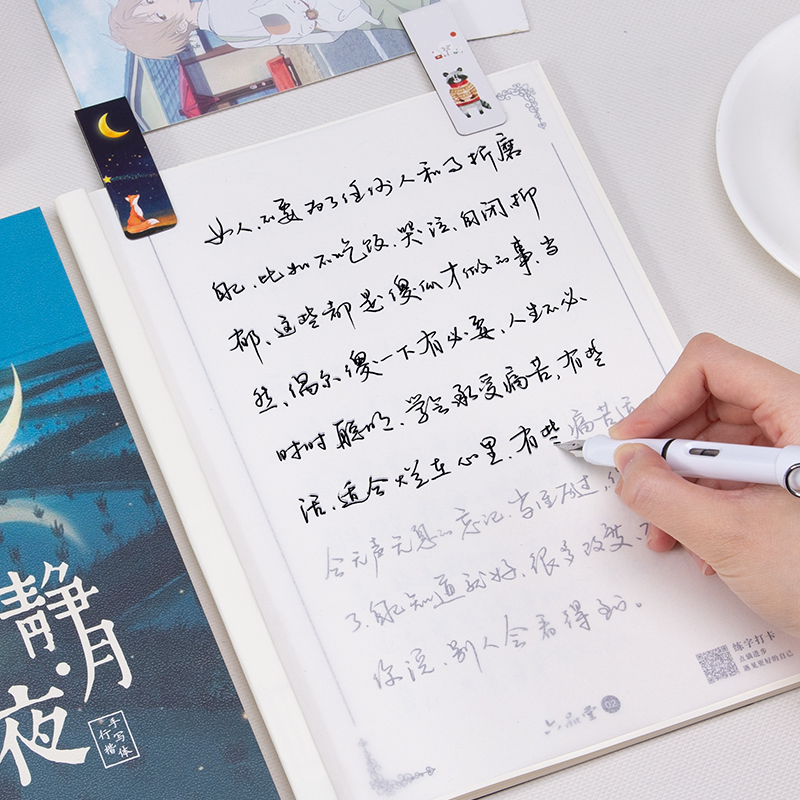 女人，不要为了任何人和事折磨
自己，比如不吃饭，哭泣，自闭，抑
郁，这些都是傻瓜才做的事，当
然，偶尔傻一下有必要，人生不必
时时聪明，学会承受痛苦，有些
话，适合烂在心里，有些痛苦适
会无声无息的忘记，当经历过，
了，自己知道就好，很多改变，不
你说，别人会看得到。
练字打卡
点滴进步
遇见更好的自己
六品堂 02
静月·夜
手写体
行楷